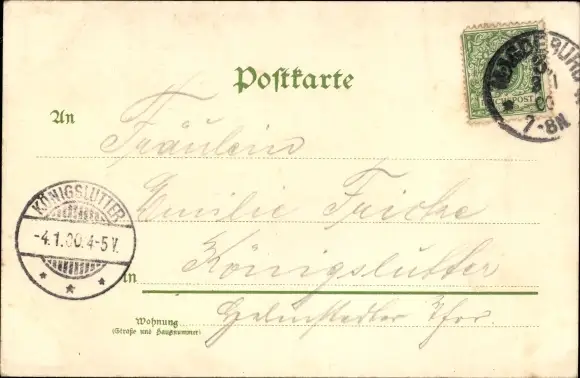 Postkarte
An
Fräulein
Emilie Fricke
in
Königslutter
Wohnung
(Straße und Hausnummer)
Helmstedter
KÖNIGSLUTTER
-4.1.00.4-5V.
MAGDEBURG
7-8N
REICHSPOST